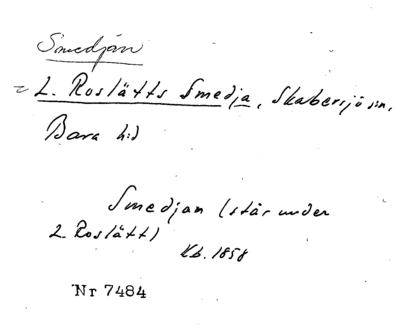 Smedjan
= L. Roslätts Smedja, Skabersjö sn,
Bara hd
Smedjan (står under
L. Roslätt)
Kb. 1858
Nr 7484